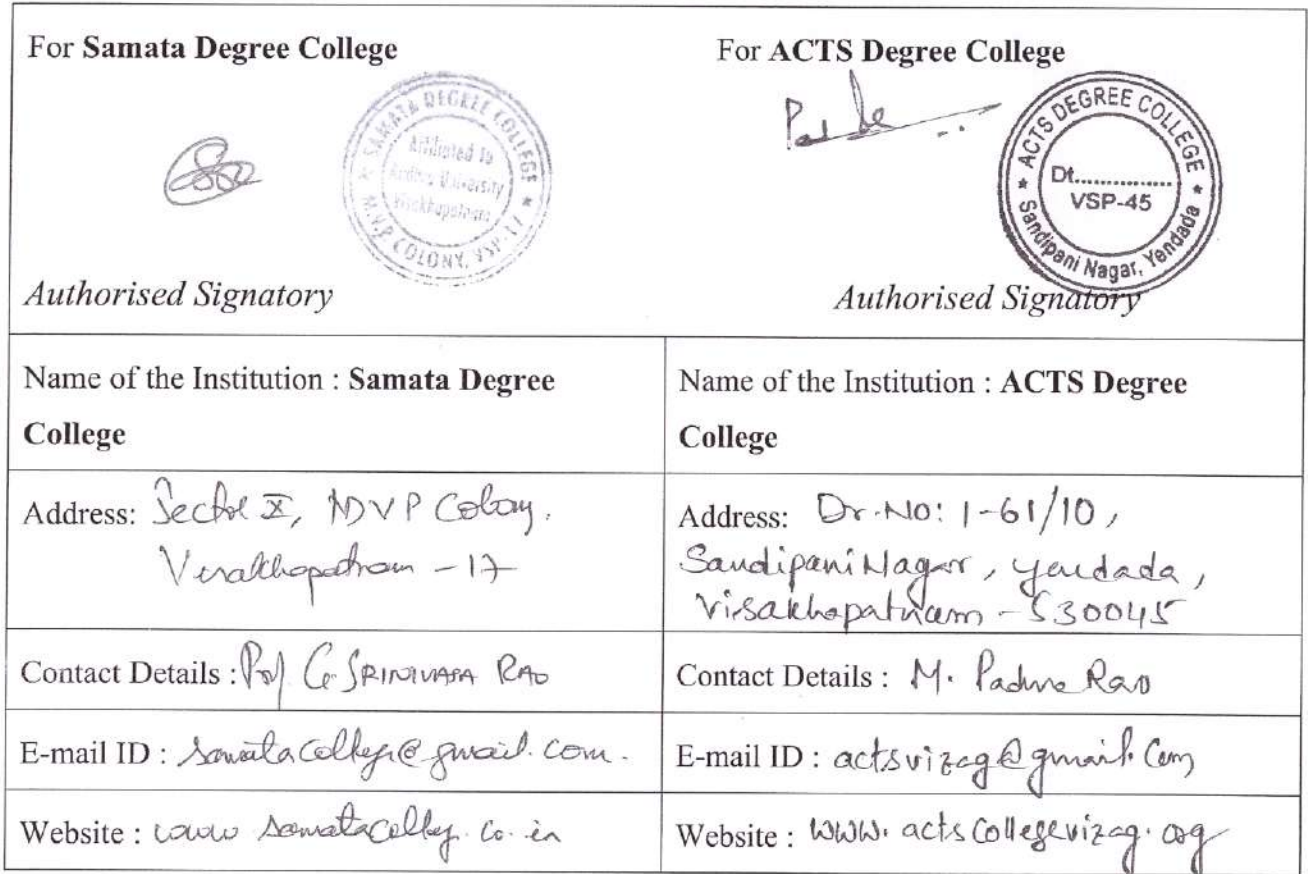 For Samata Degree College
SAMATA DEGREE COLLEGE
Affiliated to
Andhra University
Visakhapatnam
M.V.P. COLONY, VSP-17
Authorised Signatory
For ACTS Degree College
ACTS DEGREE COLLEGE
Dt...............
VSP-45
Sandipani Nagar, Yendada
Authorised Signatory
Name of the Institution : Samata Degree
College
Name of the Institution : ACTS Degree
College
Address: Sector X, MVP Colony.
Visakhapatnam - 17
Address: Dr. No: 1-61/10,
Sandipani Nagar, yendada,
Visakhapatnam - 530045
Contact Details : Prof G. SRINIVASA RAO
Contact Details : M. Padma Rao
E-mail ID : samatacollege@gmail.com.
E-mail ID : actsvizag@gmail.com
Website : www samatacolleg.co.in
Website : www.actscollegevizag.org